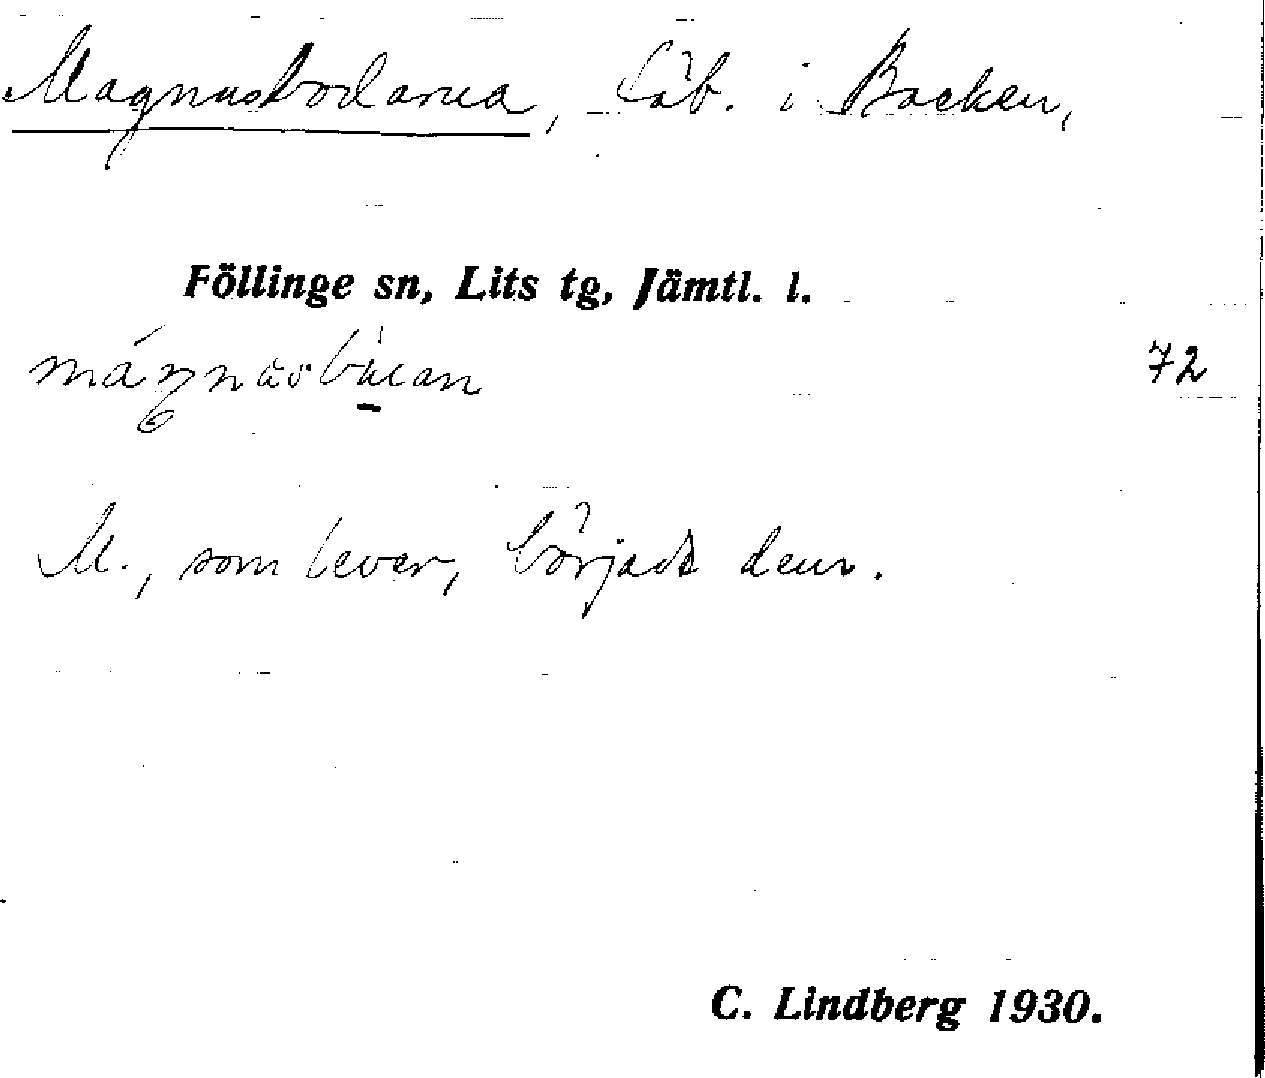 Magnusbodarna, Fäb. i Backen,
Föllinge sn, Lits tg, Jämtl. l.
72
M., som lever, började den.
C. Lindberg 1930.